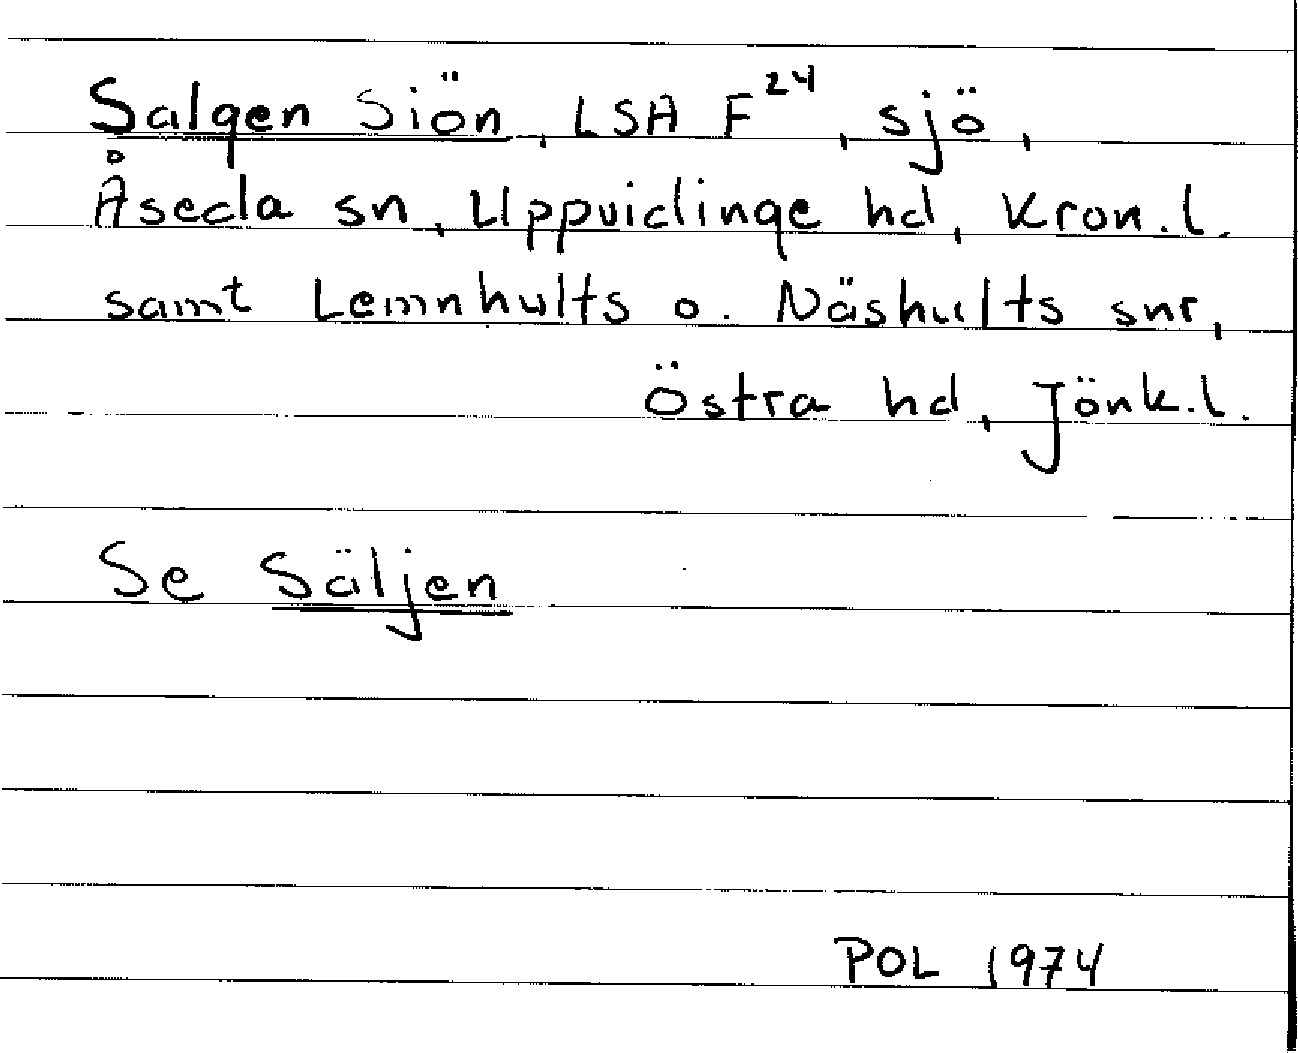 Salgen Siön, LSA F²⁴, sjö,
Åseda sn, Uppvidinge hd, Kron.l.
samt Lemnhults o. Näshults snr,
Östra hd, Jönk.l.
Se Säljen
POL 1974